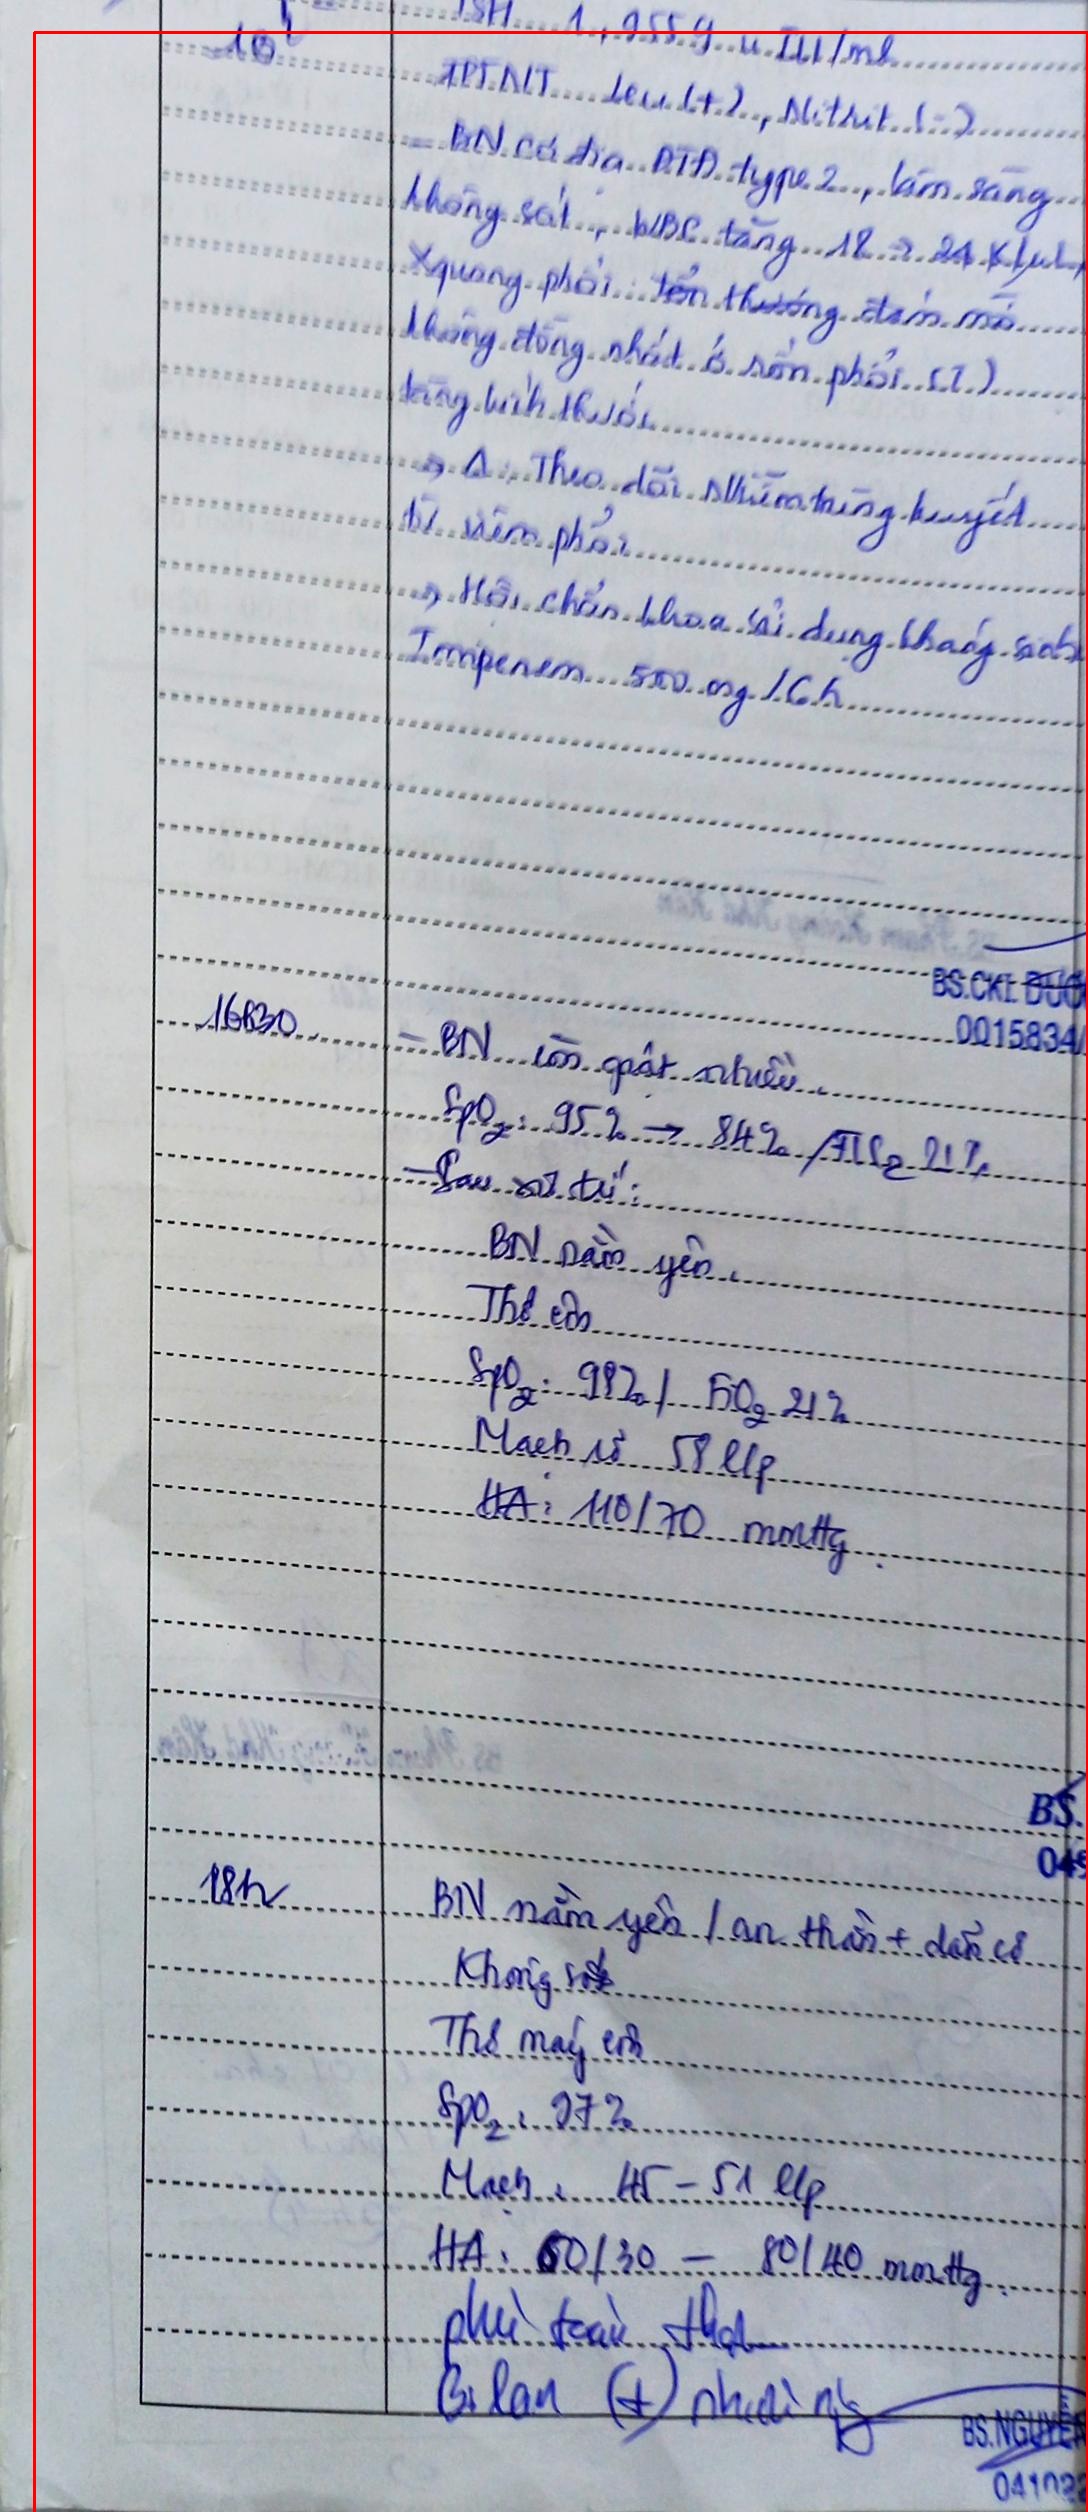 10h
TSH 1,9559 uIU/ml
TPTNT Leu (+), Nitrit (-)
- BN có địa ĐTĐ type 2, lâm sàng
không sốt, WBC tăng 18 → 24 K/uL,
Xquang phổi: tổn thương đám mờ
không đồng nhất ở rốn phổi (T)
tăng kích thước
→ Δ: Theo dõi nhiễm trùng huyết
từ viêm phổi
→ Hội chẩn khoa sử dụng kháng sinh
Imipenem 500 mg / 6h
BS.CKI. ĐƯƠ
0015834/
16h30
- BN còn quật nhiều.
SpO2: 95% → 84% / FiO2 21%
- Sau xử trí:
BN nằm yên.
Thở êm
SpO2: 99% / FiO2 21%
Mạch rõ 58 l/p
HA: 110/70 mmHg.
BS.
049
18h
BN nằm yên / an thần + dãn cơ
Không sốt
Thở máy êm
SpO2: 97%
Mạch: 45 - 51 l/p
HA: 60/30 - 80/40 mmHg.
phù toàn thân
Bilan (+) nhiều ng
BS.NGUYỄN
041022